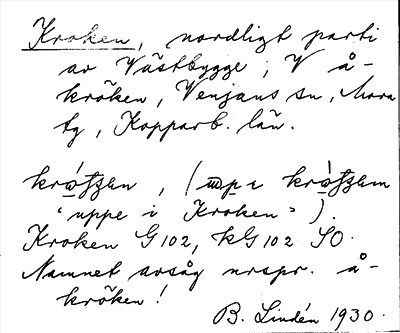 Kroken, nordligt parti
av Västbygge; V å-
kröken, Venjans sn, Mora
tg, Kopparb. län.
( i
"uppe i Kroken").
Kroken G102, kG102 SO.
Namnet avsåg urspr. å-
kröken!
B. Lindén 1930.